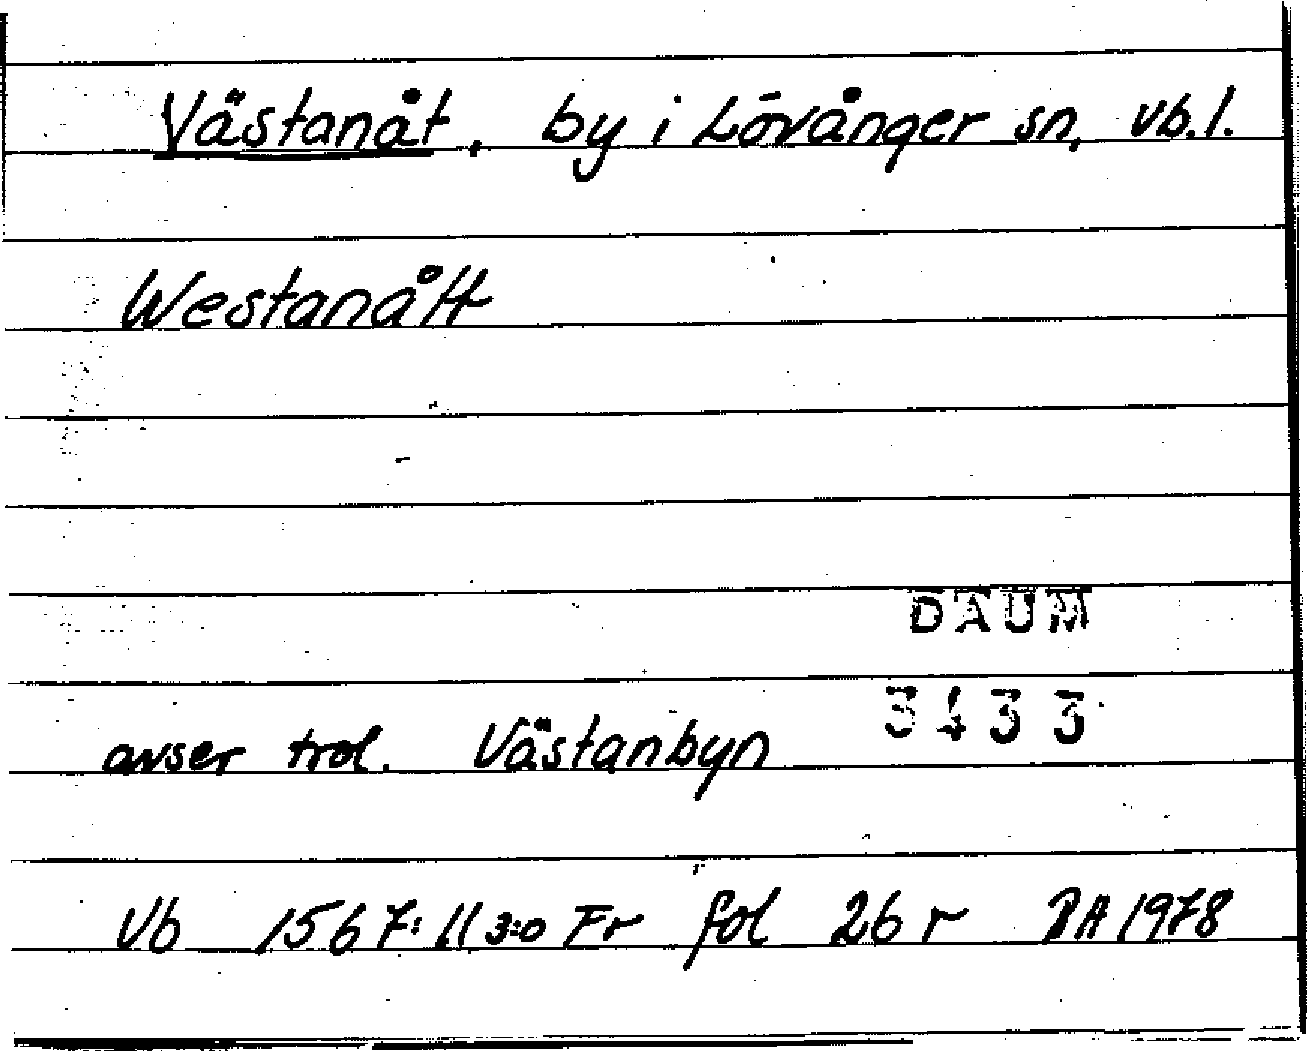 Västanåt, by i Lövånger sn, Vb.l.
Westanått
DAUM
3433
avser trol. Västanbyn
Vb 1567:11 3:o Fr fol 26 r BA 1978